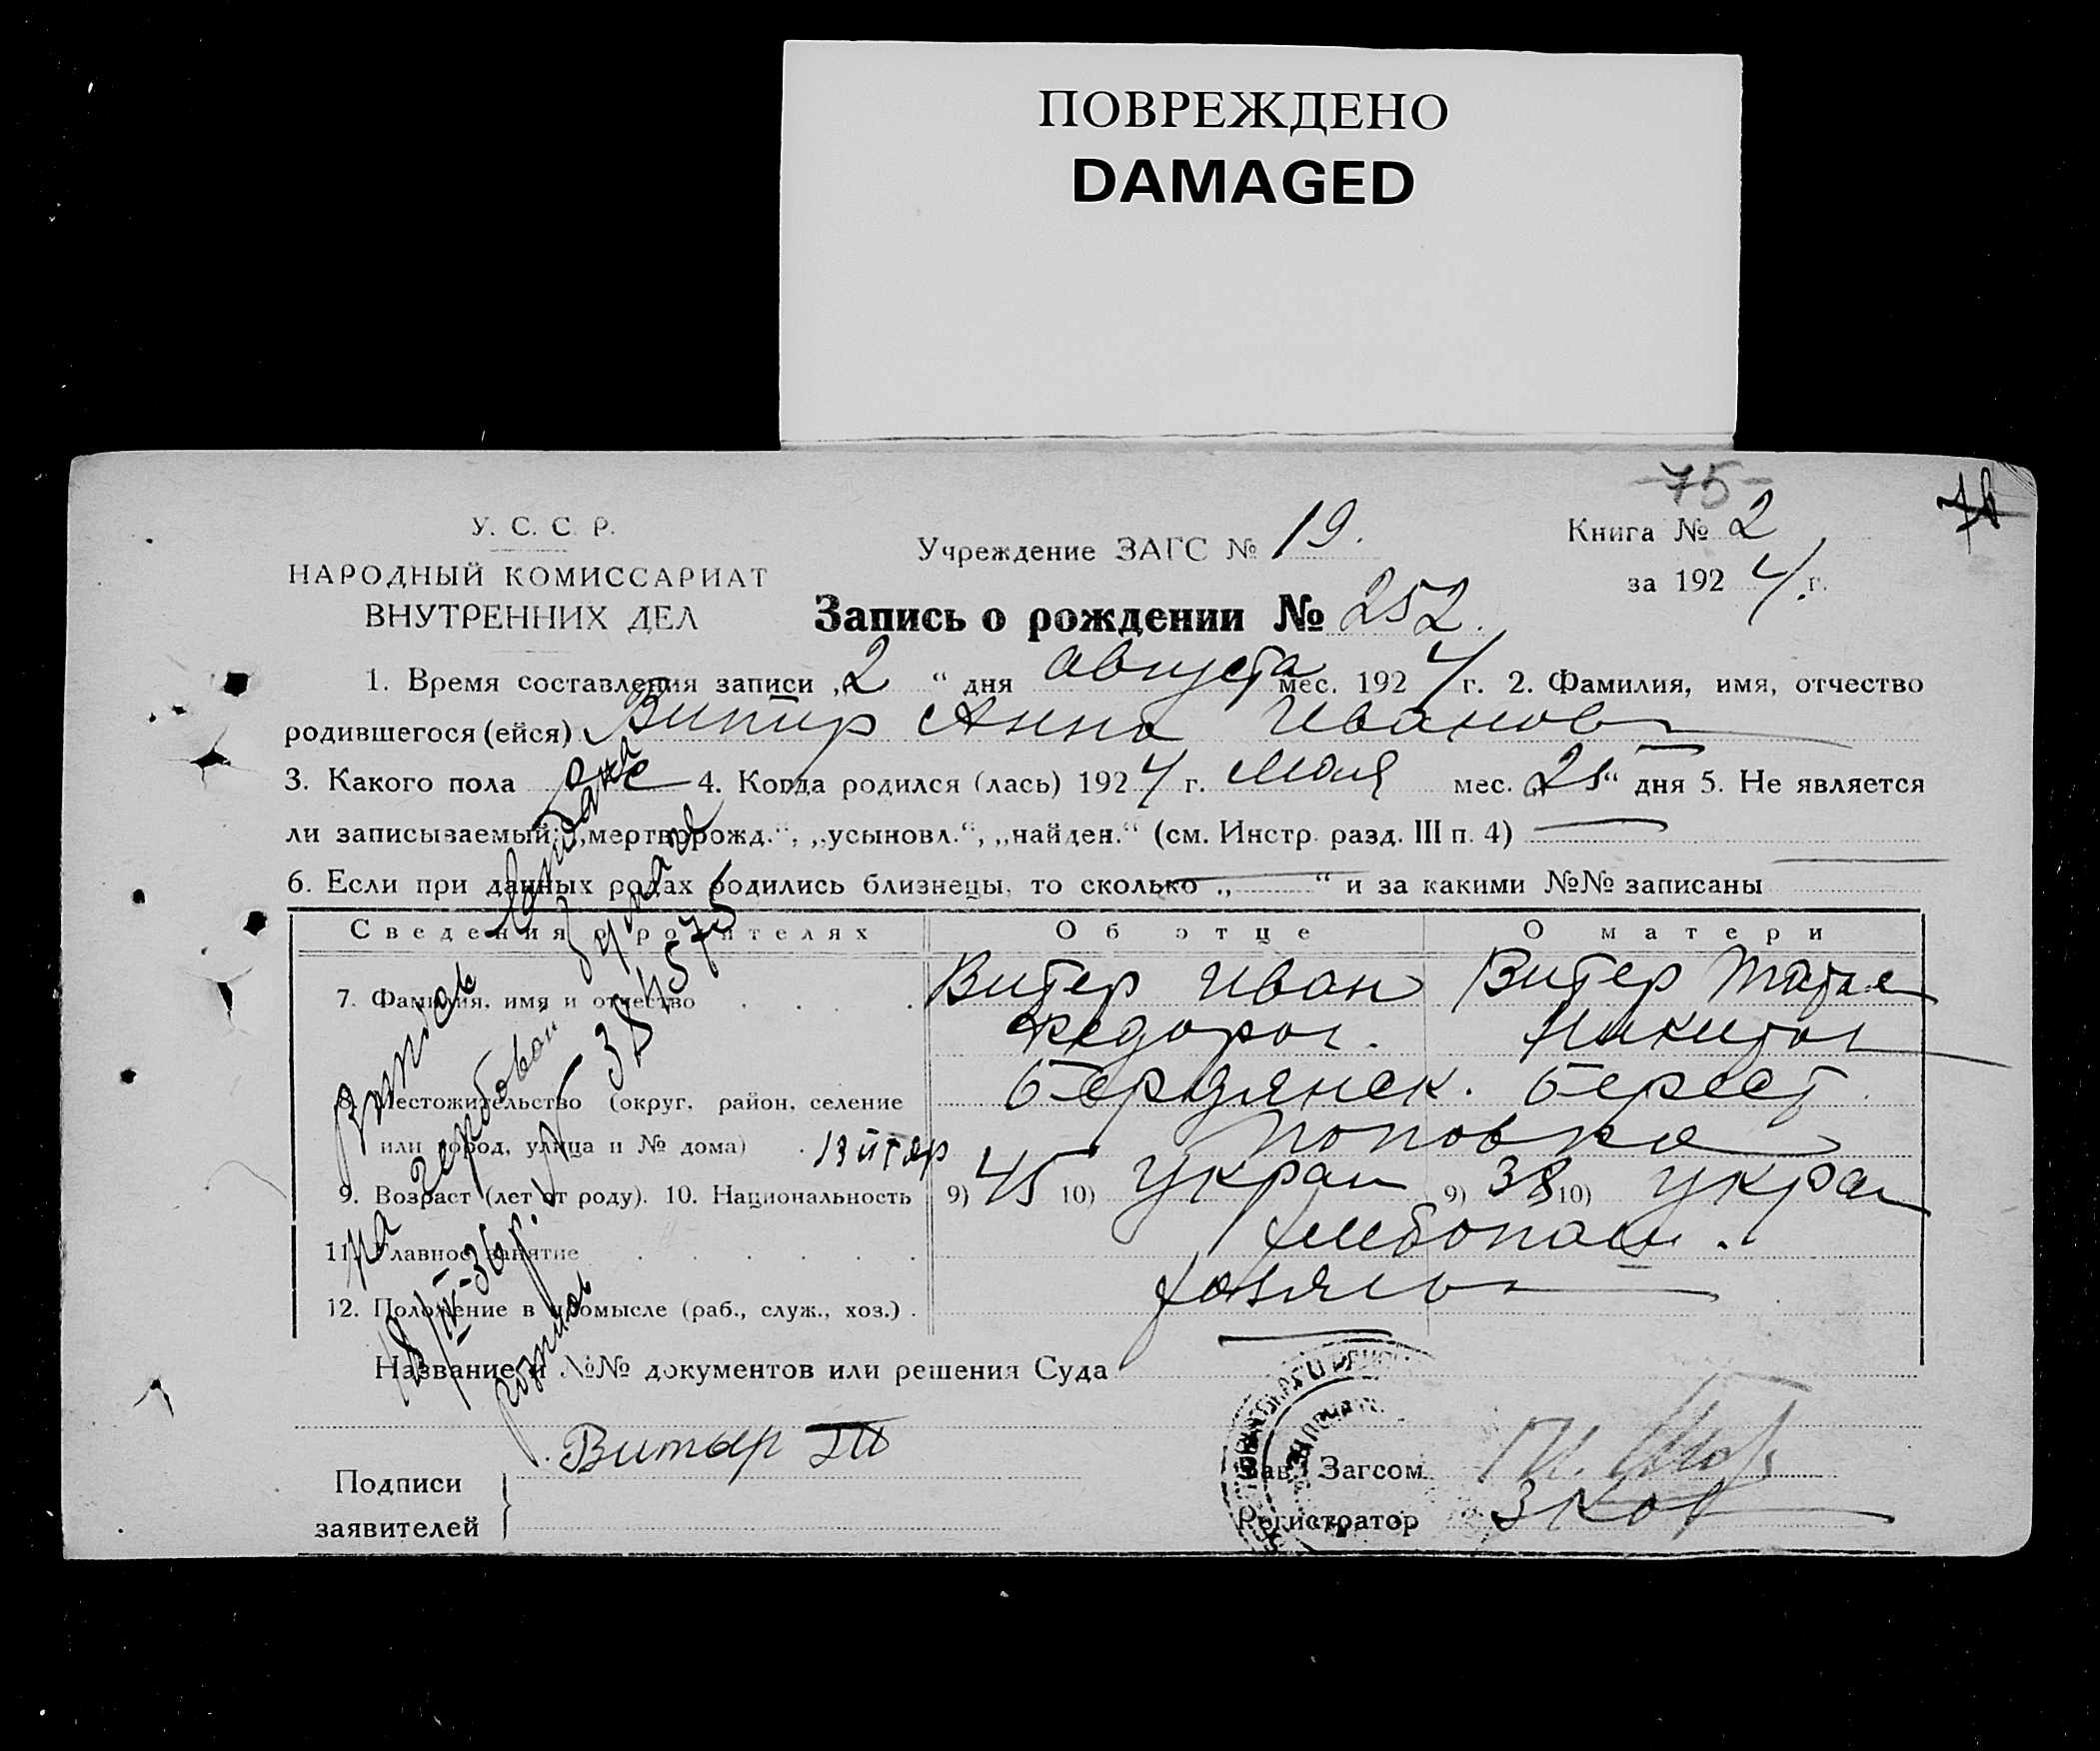 ПОВРЕЖДЕНО
DAMAGED
75
У. С. С. Р.
НАРОДНЫЙ КОМИССАРИАТ
ВНУТРЕННИХ ДЕЛ
Учреждение ЗАГС № 19.
Книга № 2
за 1924 г.
Запись о рождении № 252.
1. Время составления записи „2“ дня августа мес. 1924 г. 2. Фамилия, имя, отчество
родившегося (ейся) Витир Анна Иванов
3. Какого пола 4. Когда родился (лась) 1924 г. мая мес. „25“ дня 5. Не является
ли записываемый: „мертворожд.“, „усыновл.“, „найден.“ (см. Инстр. разд. III п. 4)
6. Если при данных родах родились близнецы, то сколько „ “ и за какими №№ записаны
Сведения о родителях Об отце О матери
7. Фамилия, имя и отчество Витер Иван Витер Татья
Федоров. Никитов
8. Местожительство (округ, район, селение Бердянск. Берест
или город, улица и № дома) Поповка
9. Возраст (лет от роду). 10. Национальность 9) 45 10) Украи 9) 38 10) Украи
11. Главное занятие Хлебопаш.
12. Положение в промысле (раб., служ., хоз.) Хозяева
Название и №№ документов или решения Суда
Витяг
на гербовой бумаге
18/IV-36 р.
Подписи
заявителей
Витыр
Зав. Загсом
Регистратор